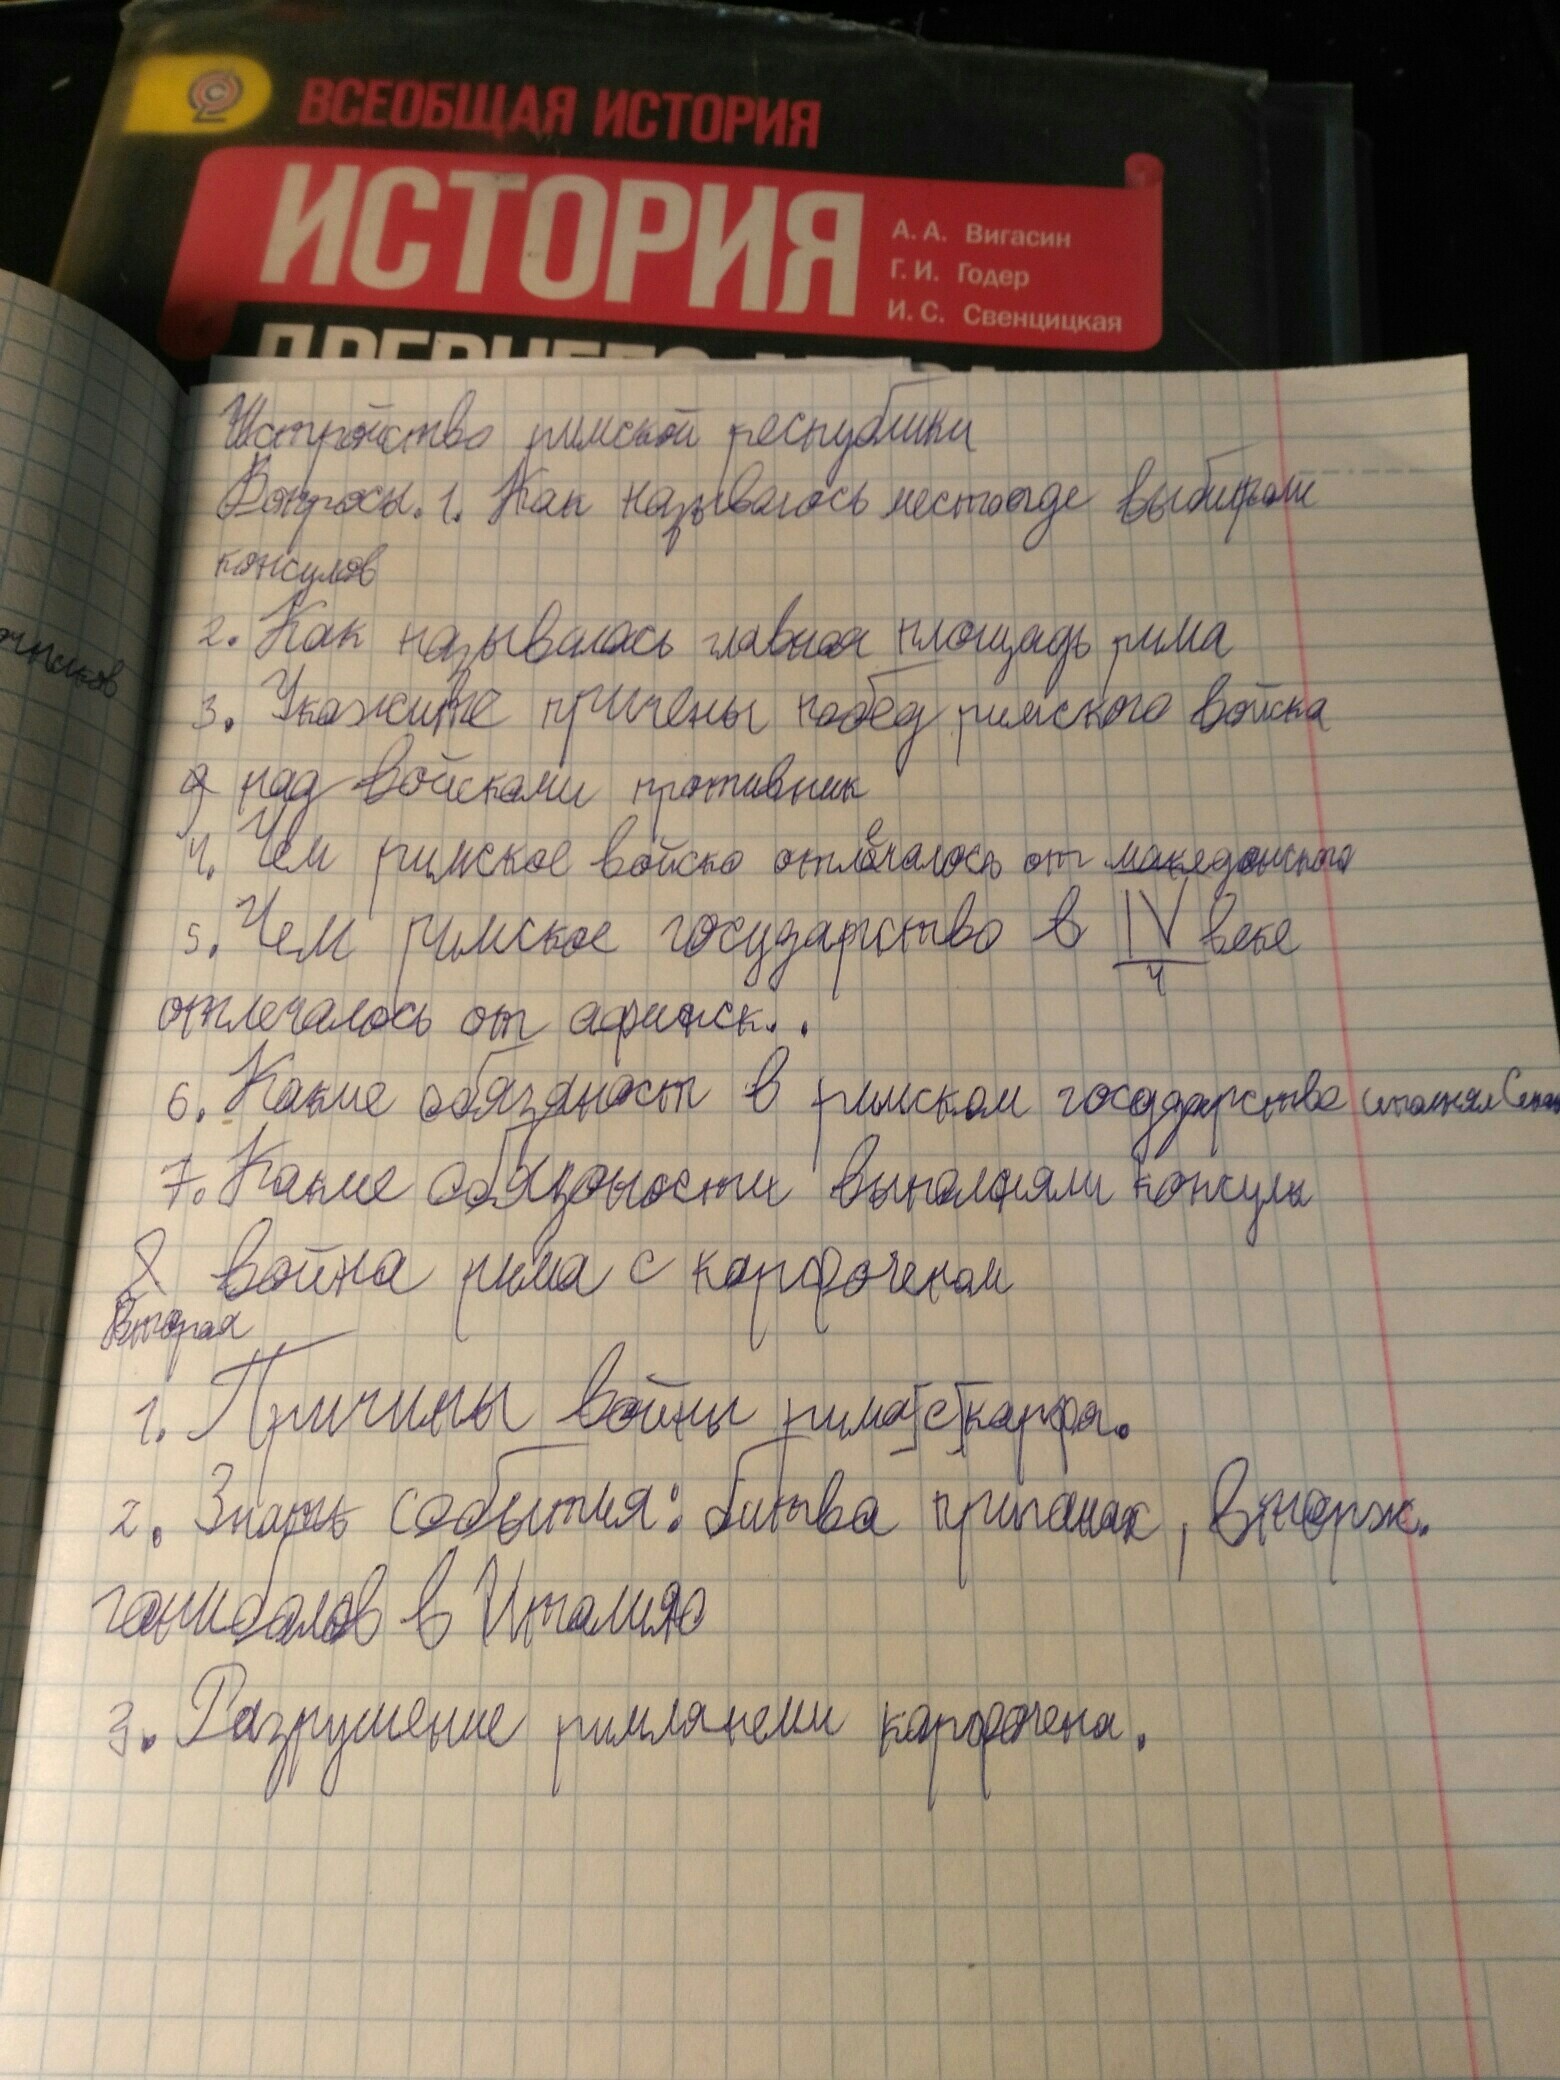 ВСЕОБЩАЯ ИСТОРИЯ
ИСТОРИЯ
А. А. Вигасин
Г. И. Годер
И. С. Свенцицкая
ДРЕВНЕГО
Устройство римской республики
Вопросы. 1. Как называлось место где выбирали
консулов
2. Как называлась главная площадь рима
3. Укажите причены побед римского войска
над войсками противник
4. Чем римское войско отлечалось от македонского
5. Чем римское государство в IV веке
4
отлечалось от афинск..
6. Какие обязаност в римском государстве исполнял
7. Какие обязоности выполняли консулы
2 война рима с карфогеном
Вторая
1. Причины войны рима с карфа.
2. Знать события: битва приканах, вторж.
ганибалов в Италию
3. Разрушение римлянеми карфагена.